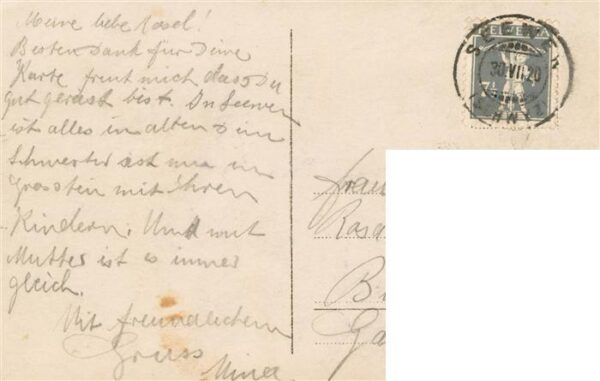 Meine liebe Rosel!
Besten Dank für Deine
Karte freut mich dass Du
gut gerast bist. In Seewen
ist alles im alten & im
Schwerter ist nur
Grosstein mit ihren
Kindern. Und mit
Mutter ist es immer
gleich.
Mit freundlichem
Gruss
Mina
HELVETIA
7½
SEEWEN
30.VII.20